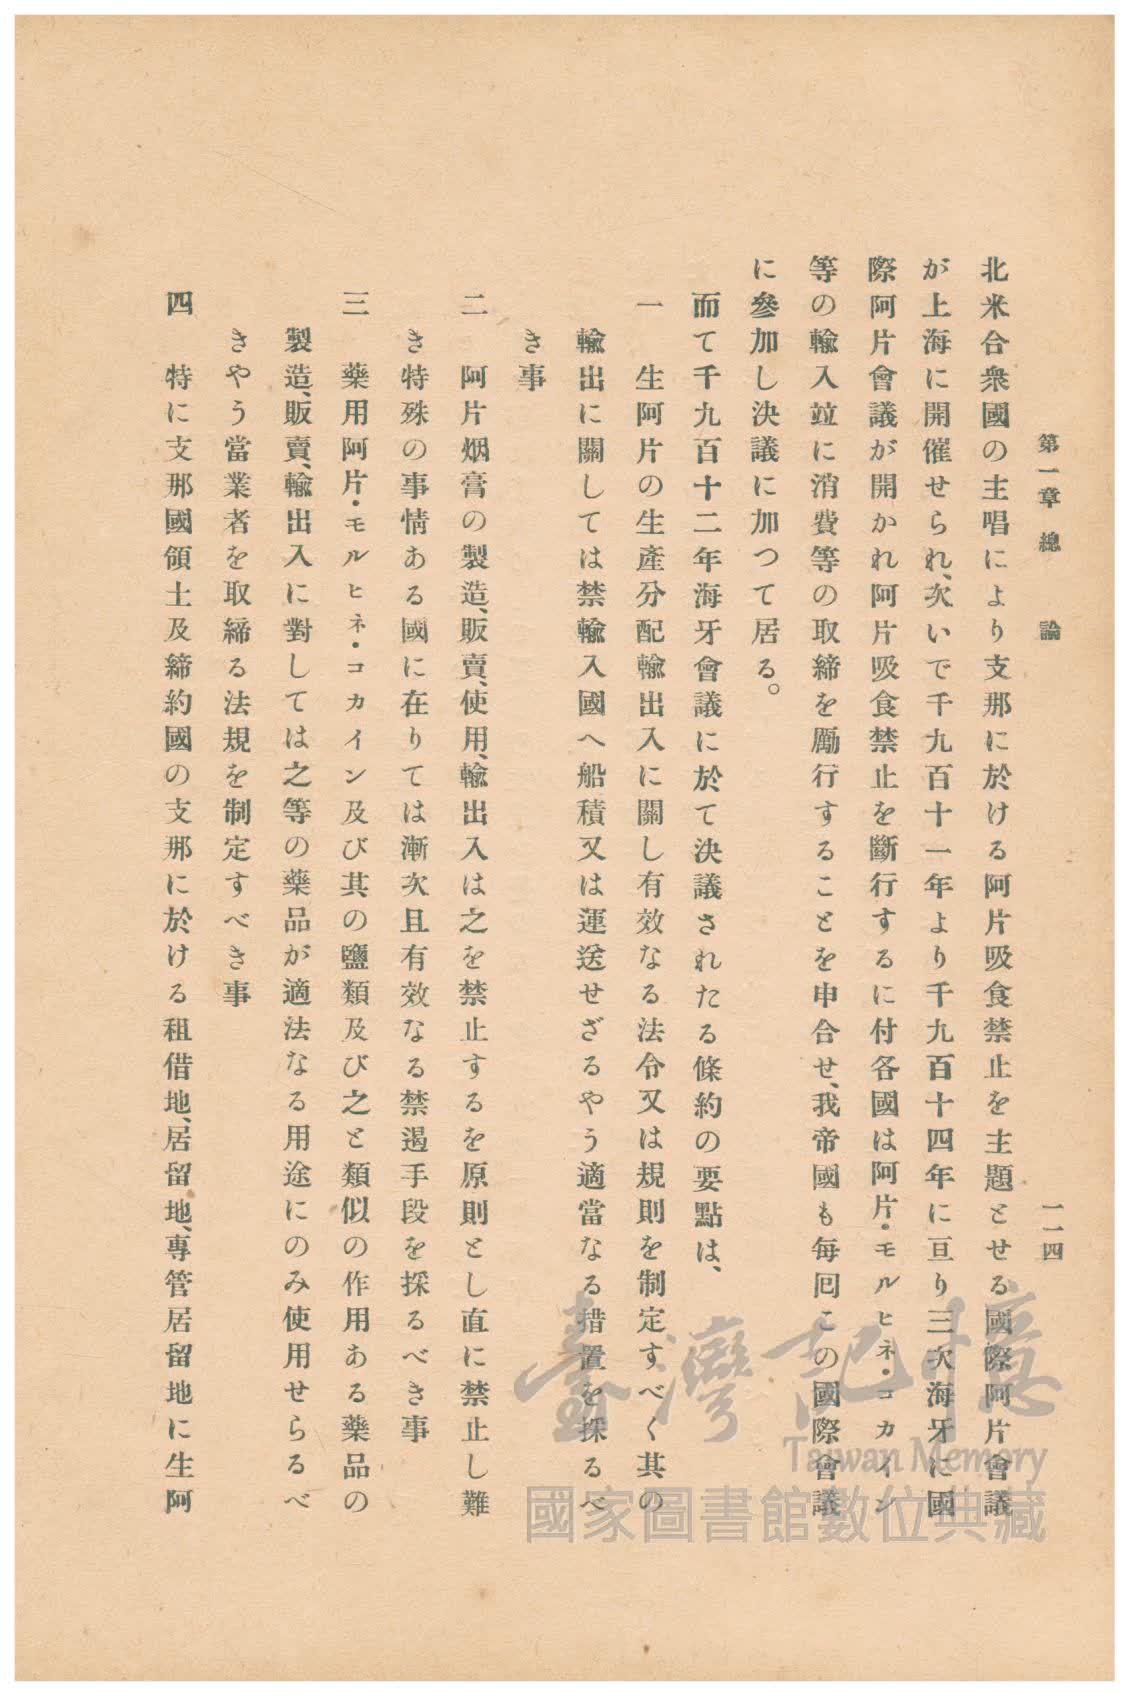 第一章 總論
一一四
北米合衆國の主唱により支那に於ける阿片吸食禁止を主題とせる國際阿片會議
が上海に開催せられ、次いで千九百十一年より千九百十四年に亘り三次海牙に國
際阿片會議が開かれ阿片吸食禁止を斷行するに付各國は阿片・モルヒネ・コカイン
等の輸入竝に消費等の取締を勵行することを申合せ、我帝國も每囘この國際會議
に參加し決議に加つて居る。
而て千九百十二年海牙會議に於て決議されたる條約の要點は、
一 生阿片の生產分配輸出入に關し有效なる法令又は規則を制定すべく其の
輸出に關しては禁輸入國へ船積又は運送せざるやう適當なる措置を採るべ
き事
二 阿片烟膏の製造、販賣、使用、輸出入は之を禁止するを原則とし直に禁止し難
き特殊の事情ある國に在りては漸次且有效なる禁遏手段を採るべき事
三 藥用阿片・モルヒネ・コカイン及び其の鹽類及び之と類似の作用ある藥品の
製造、販賣、輸出入に對しては之等の藥品が適法なる用途にのみ使用せらるべ
きやう當業者を取締る法規を制定すべき事
四 特に支那國領土及締約國の支那に於ける租借地、居留地、專管居留地に生阿
臺灣記憶
Taiwan Memory
國家圖書館數位典藏